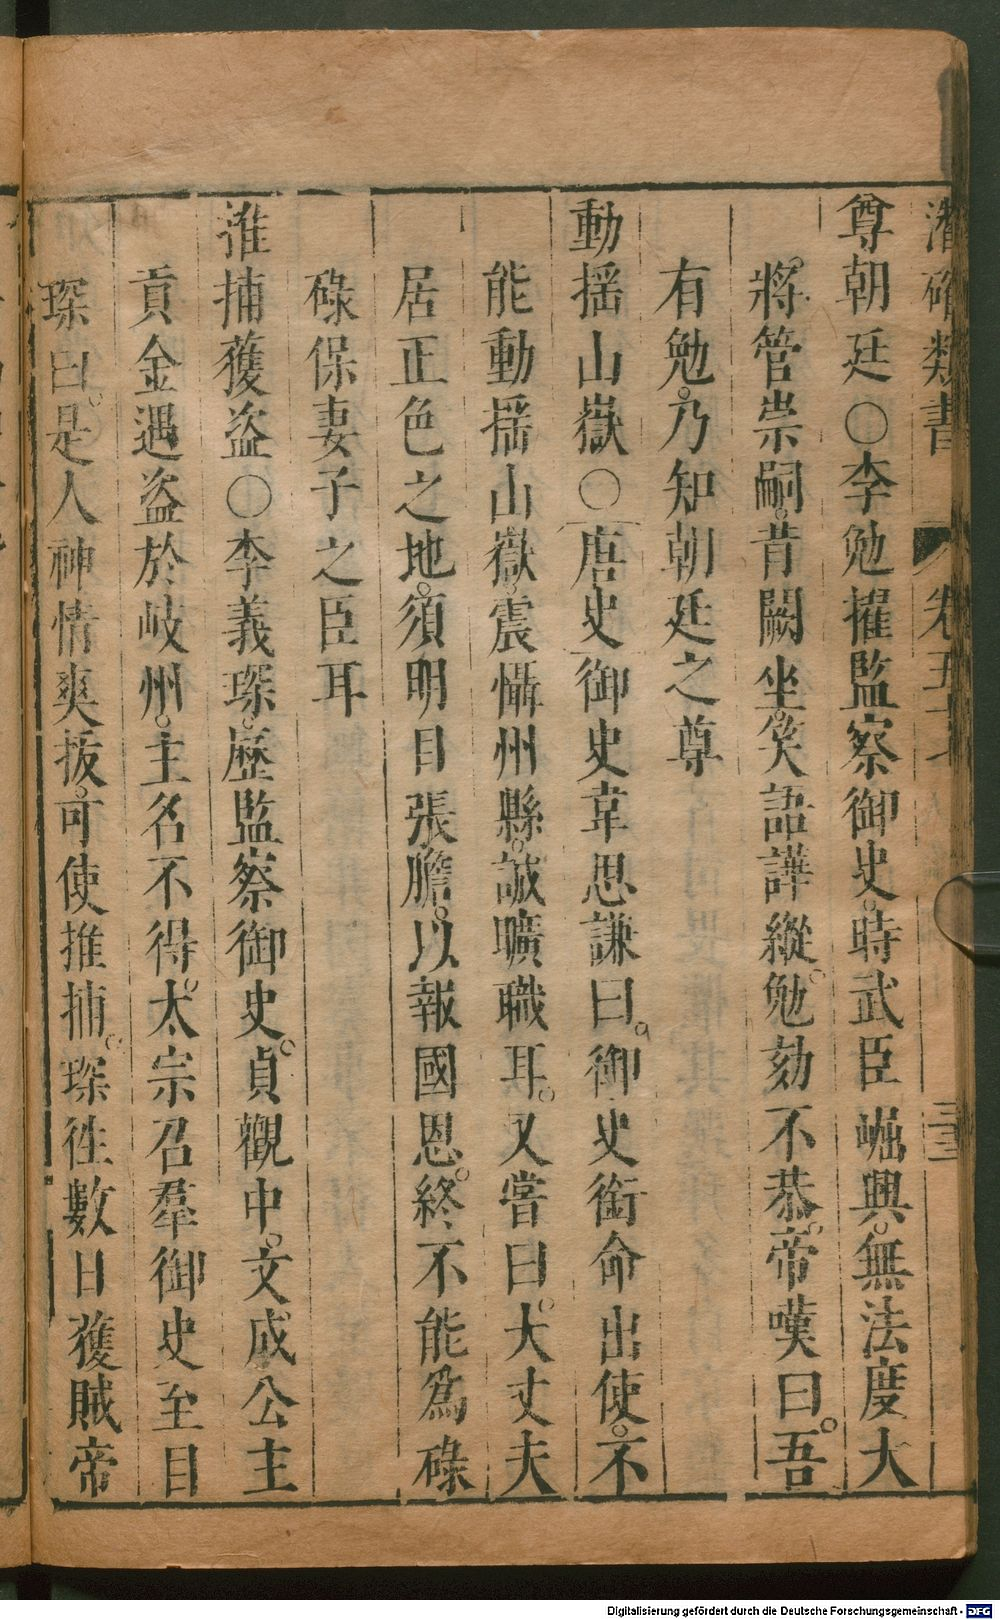 潛確類書 卷五十 三
尊朝廷○李勉擢監察御史。時武臣崛興。無法度大
將管崇嗣。背闕坐。笑語譁縱。勉劾不恭。帝嘆曰。吾
有勉。乃知朝廷之尊
動搖山嶽○唐史御史韋思謙曰。御史銜命出使。不
能動搖山嶽。震懾州縣。誠曠職耳。又嘗曰。大丈夫
居正色之地。須明目張膽。以報國恩。終不能爲碌
碌保妻子之臣耳
推捕獲盜○李義琛。歷監察御史。貞觀中。文成公主
貢金遇盜於岐州。主名不得。太宗召羣御史至目
琛曰。是人神情爽拔。可使推捕。琛往數日獲賊帝
Digitalisierung gefördert durch die Deutsche Forschungsgemeinschaft - DFG